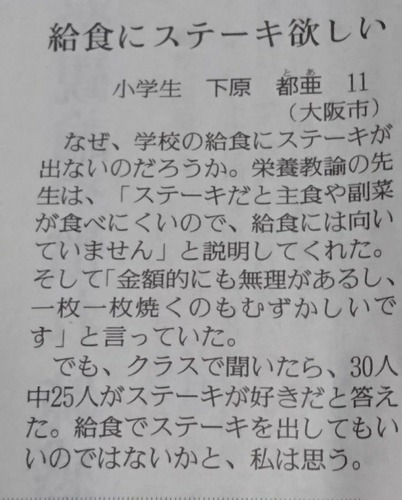 給食にステーキ欲しい
小学生　下原　都亜　11
とあ
（大阪市）
　なぜ、学校の給食にステーキが
出ないのだろうか。栄養教諭の先
生は、「ステーキだと主食や副菜
が食べにくいので、給食には向い
ていません」と説明してくれた。
そして「金額的にも無理があるし、
一枚一枚焼くのもむずかしいで
す」と言っていた。
　でも、クラスで聞いたら、30人
中25人がステーキが好きだと答え
た。給食でステーキを出してもい
いのではないかと、私は思う。